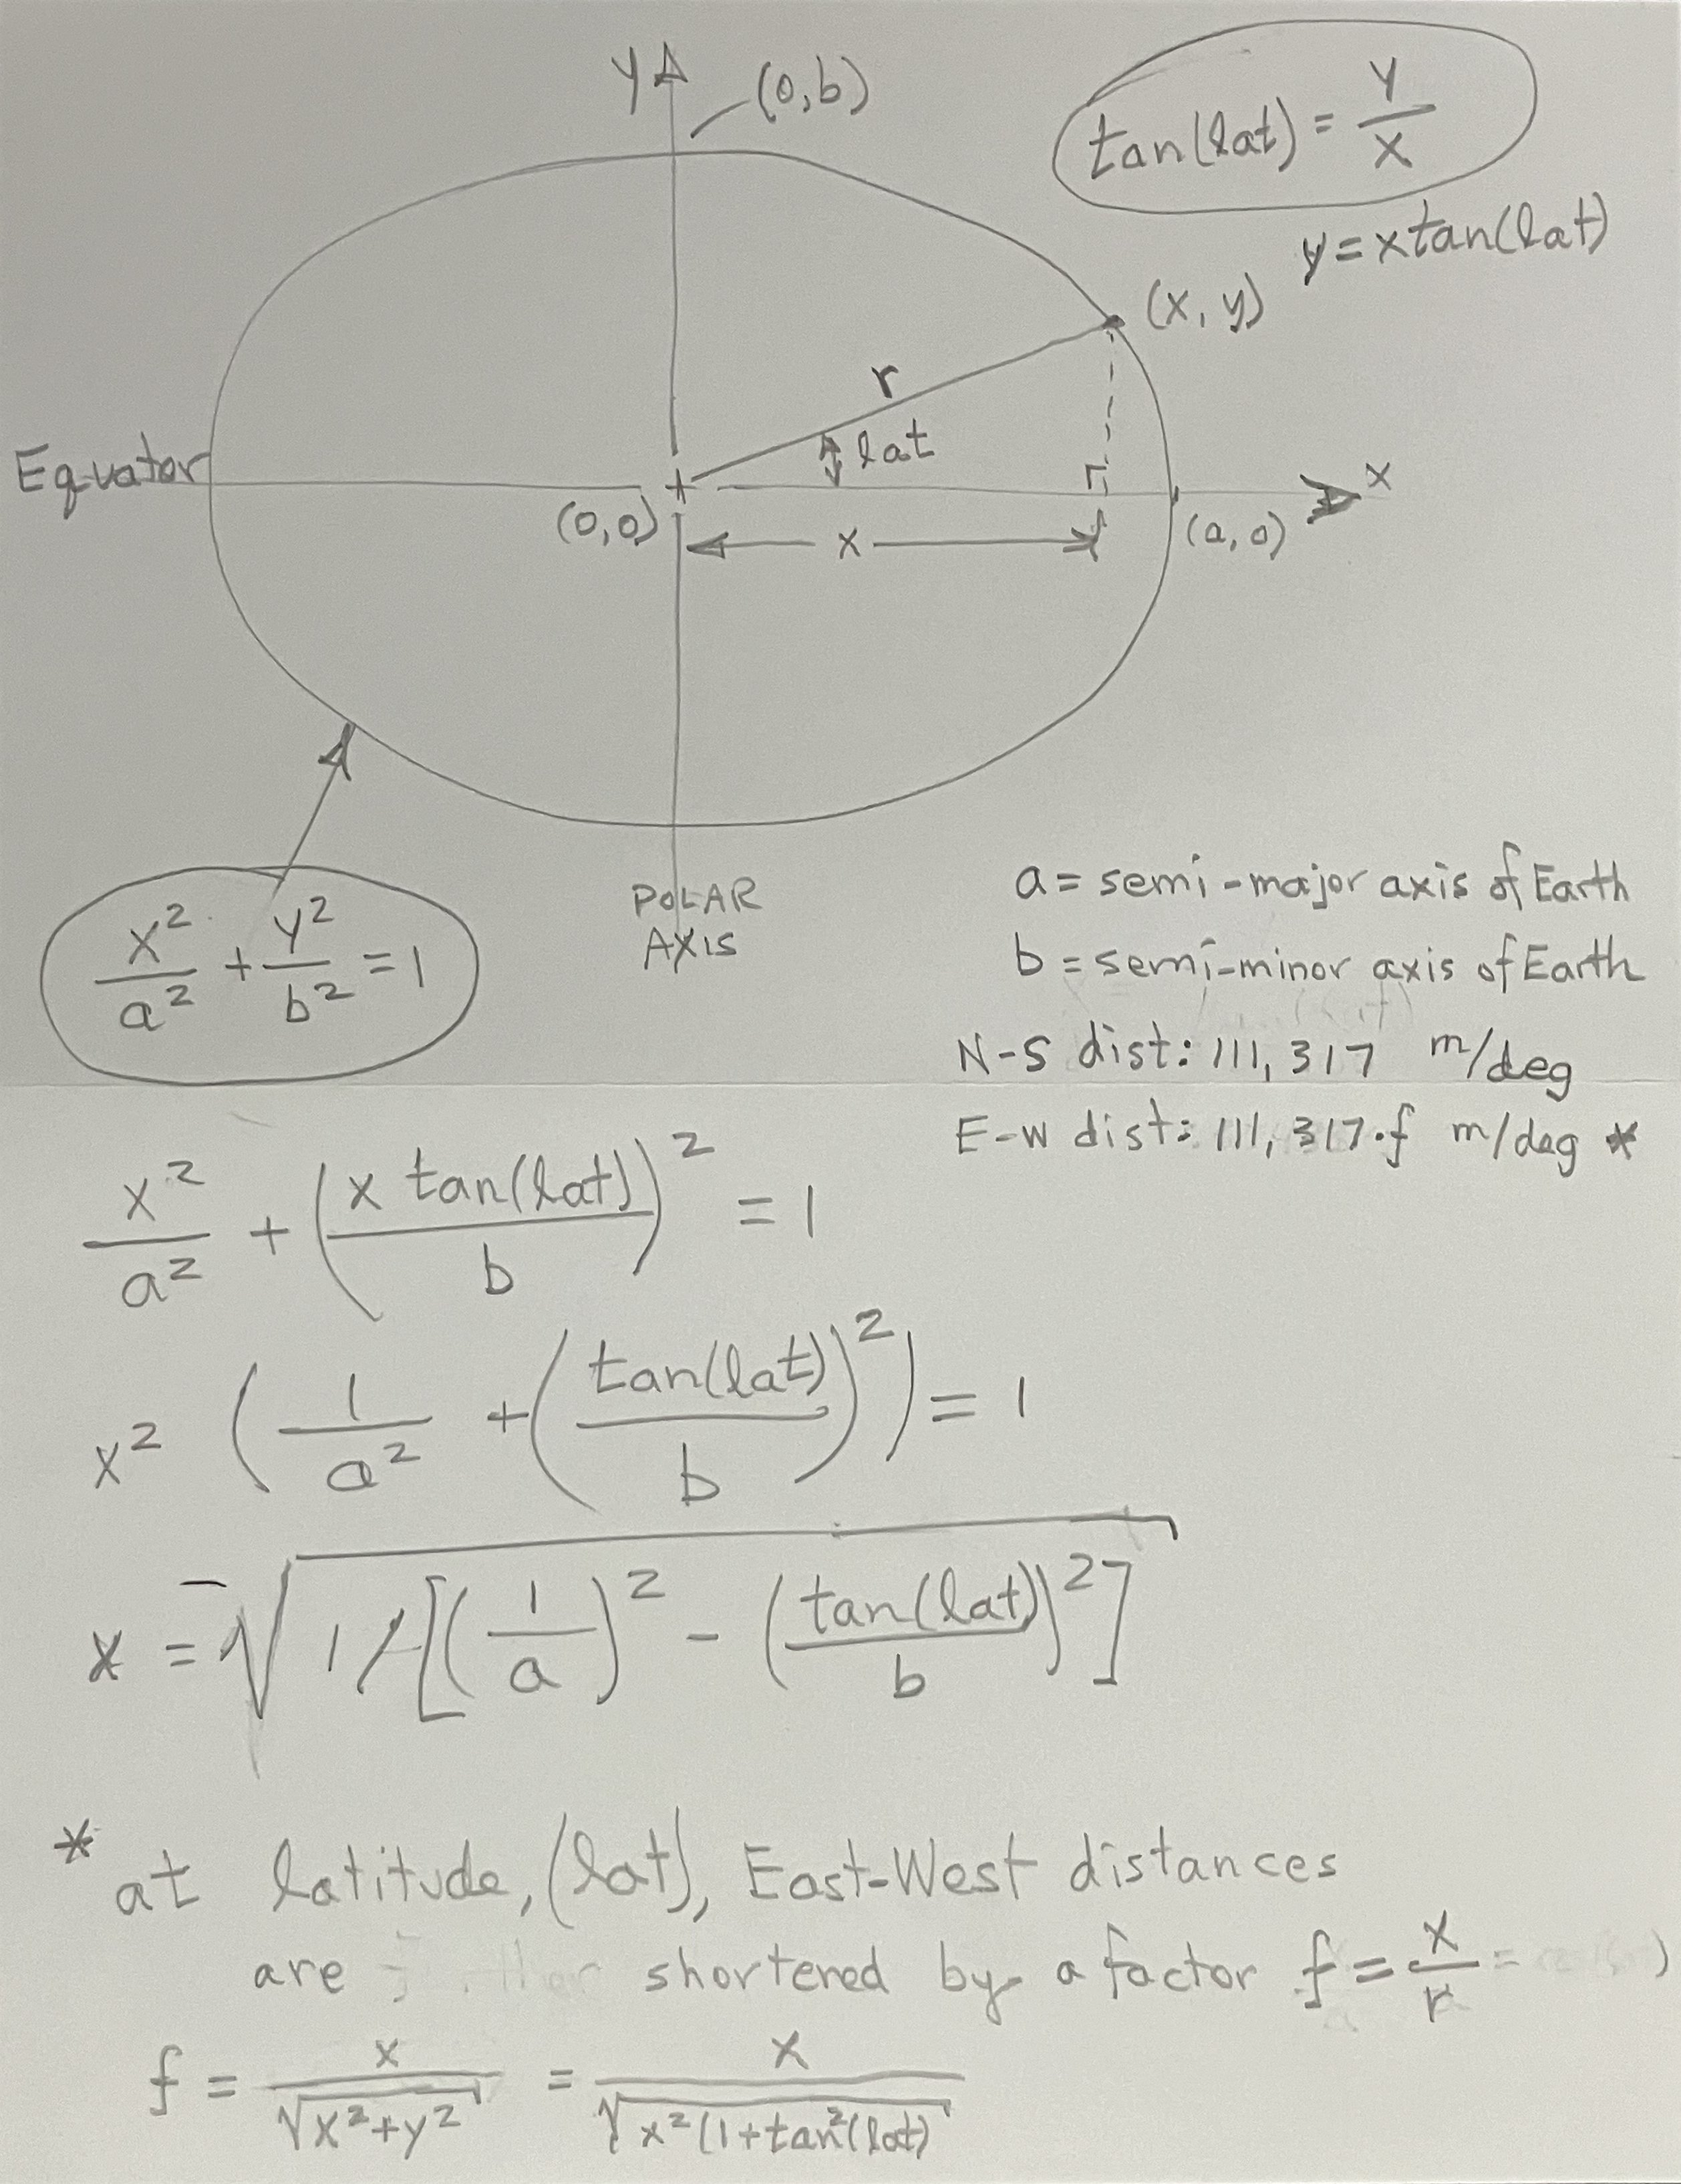 y
(0,b)
tan(lat) = y/x
y = x tan(lat)
(x, y)
r
lat
Equator
x
(0,0)
x
(a,0)
POLAR
AXIS
x²/a² + y²/b² = 1
a = semi-major axis of Earth
b = semi-minor axis of Earth
N-S dist: 111,317 m/deg
E-W dist: 111,317·f m/deg *
x²/a² + (x tan(lat)/b)² = 1
x² (1/a² + (tan(lat)/b)²) = 1
x = √(1/[(1/a)² - (tan(lat)/b)²])
* at latitude, (lat), East-West distances
are shortened by a factor f = x/r =
f = x/√(x²+y²) = x/√(x²(1+tan²(lat)